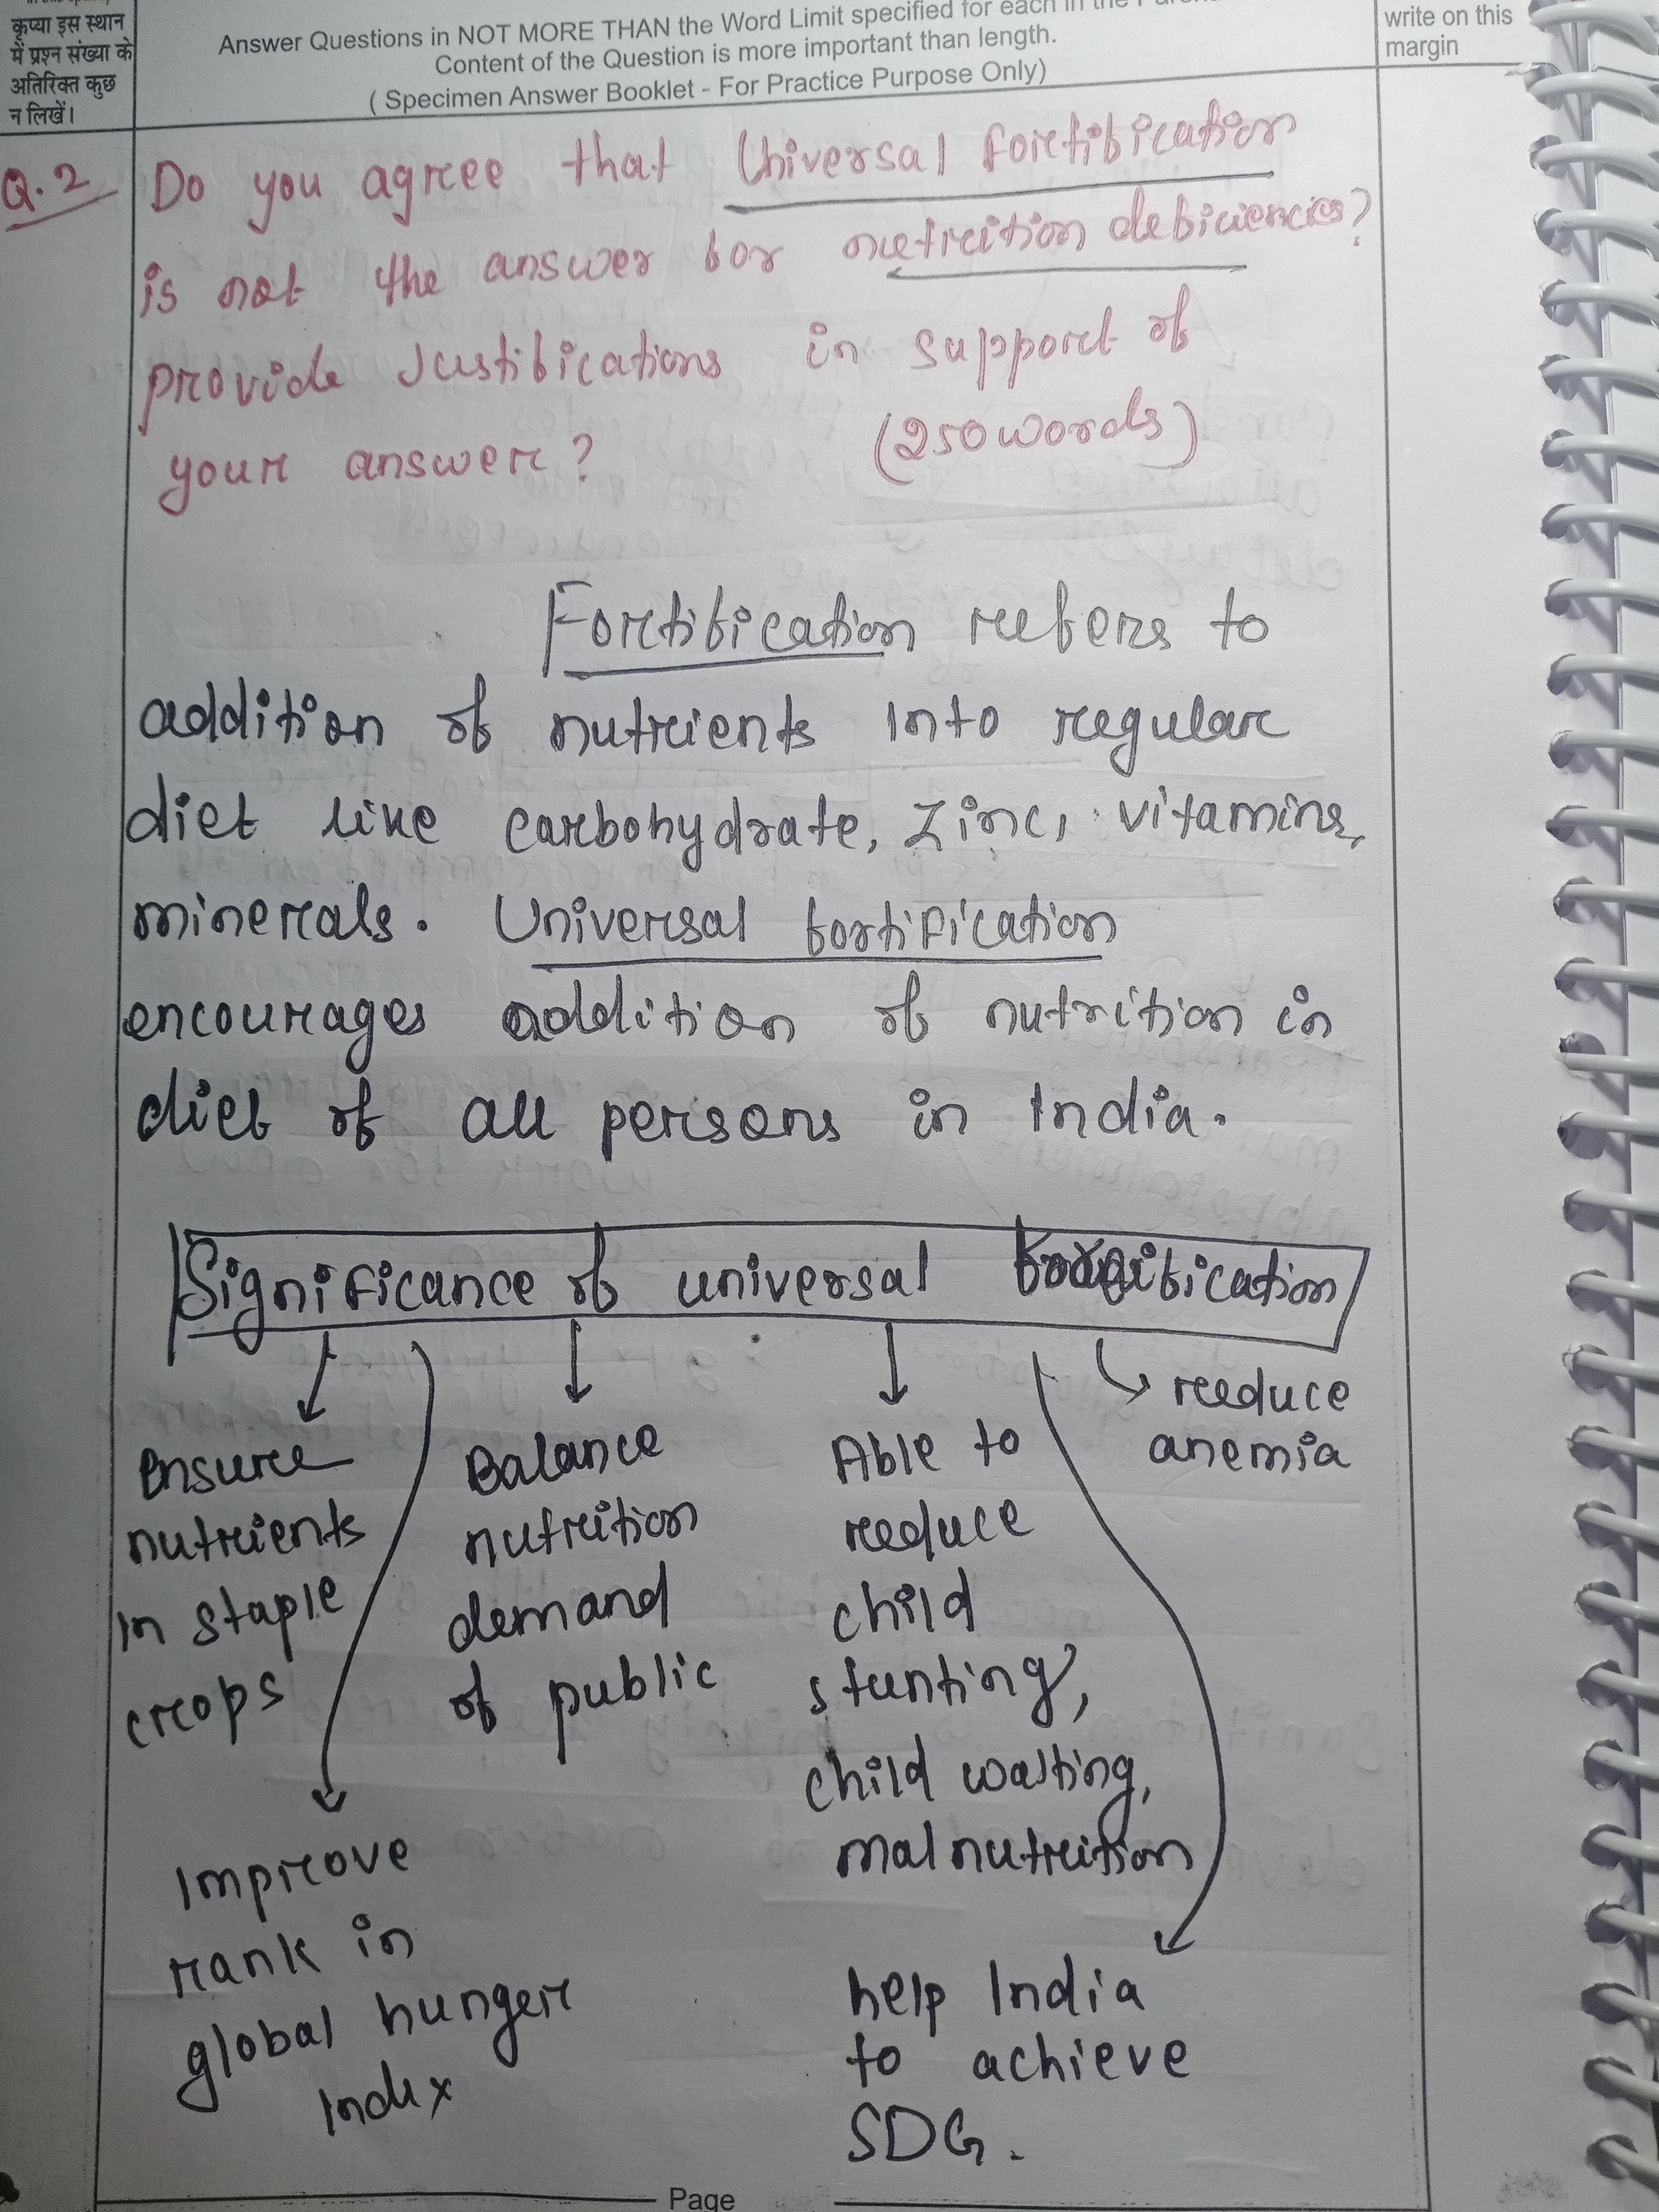 कृप्या इस स्थान
में प्रश्न संख्या के
अतिरिक्त कुछ
न लिखें।
Answer Questions in NOT MORE THAN the Word Limit specified for each in the
Content of the Question is more important than length.
( Specimen Answer Booklet - For Practice Purpose Only)
write on this
margin
Q.2 Do you agree that Universal Fortification
is not the answer for nutrition deficiencies?
provide Justifications in support of
your answer? (250 words)
Fortification refers to
addition of nutrients into regular
diet like carbohydrate, Zinc, vitamins,
minerals. Universal fortification
encourages addition of nutrition in
diet of all persons in India.
Significance of universal fortification
Ensure
nutrients
in staple
crops
Balance
nutrition
demand
of public
Able to
reduce
child
stunting,
child wasting,
malnutrition
reduce
anemia
Improve
rank in
global hunger
Index
help India
to achieve
SDG.
Page